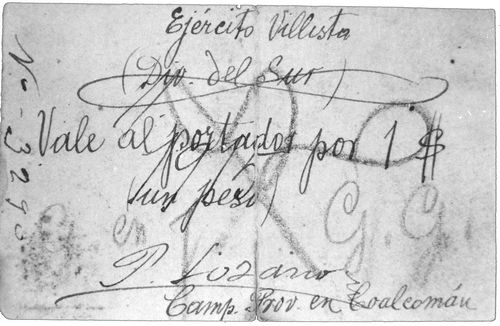 Ejército Villista
(Div. del Sur)
Vale al portador por 1 $
(un peso)
G. G.
P. Lozano
Camp. Prov. en Coalcomán
No 3293